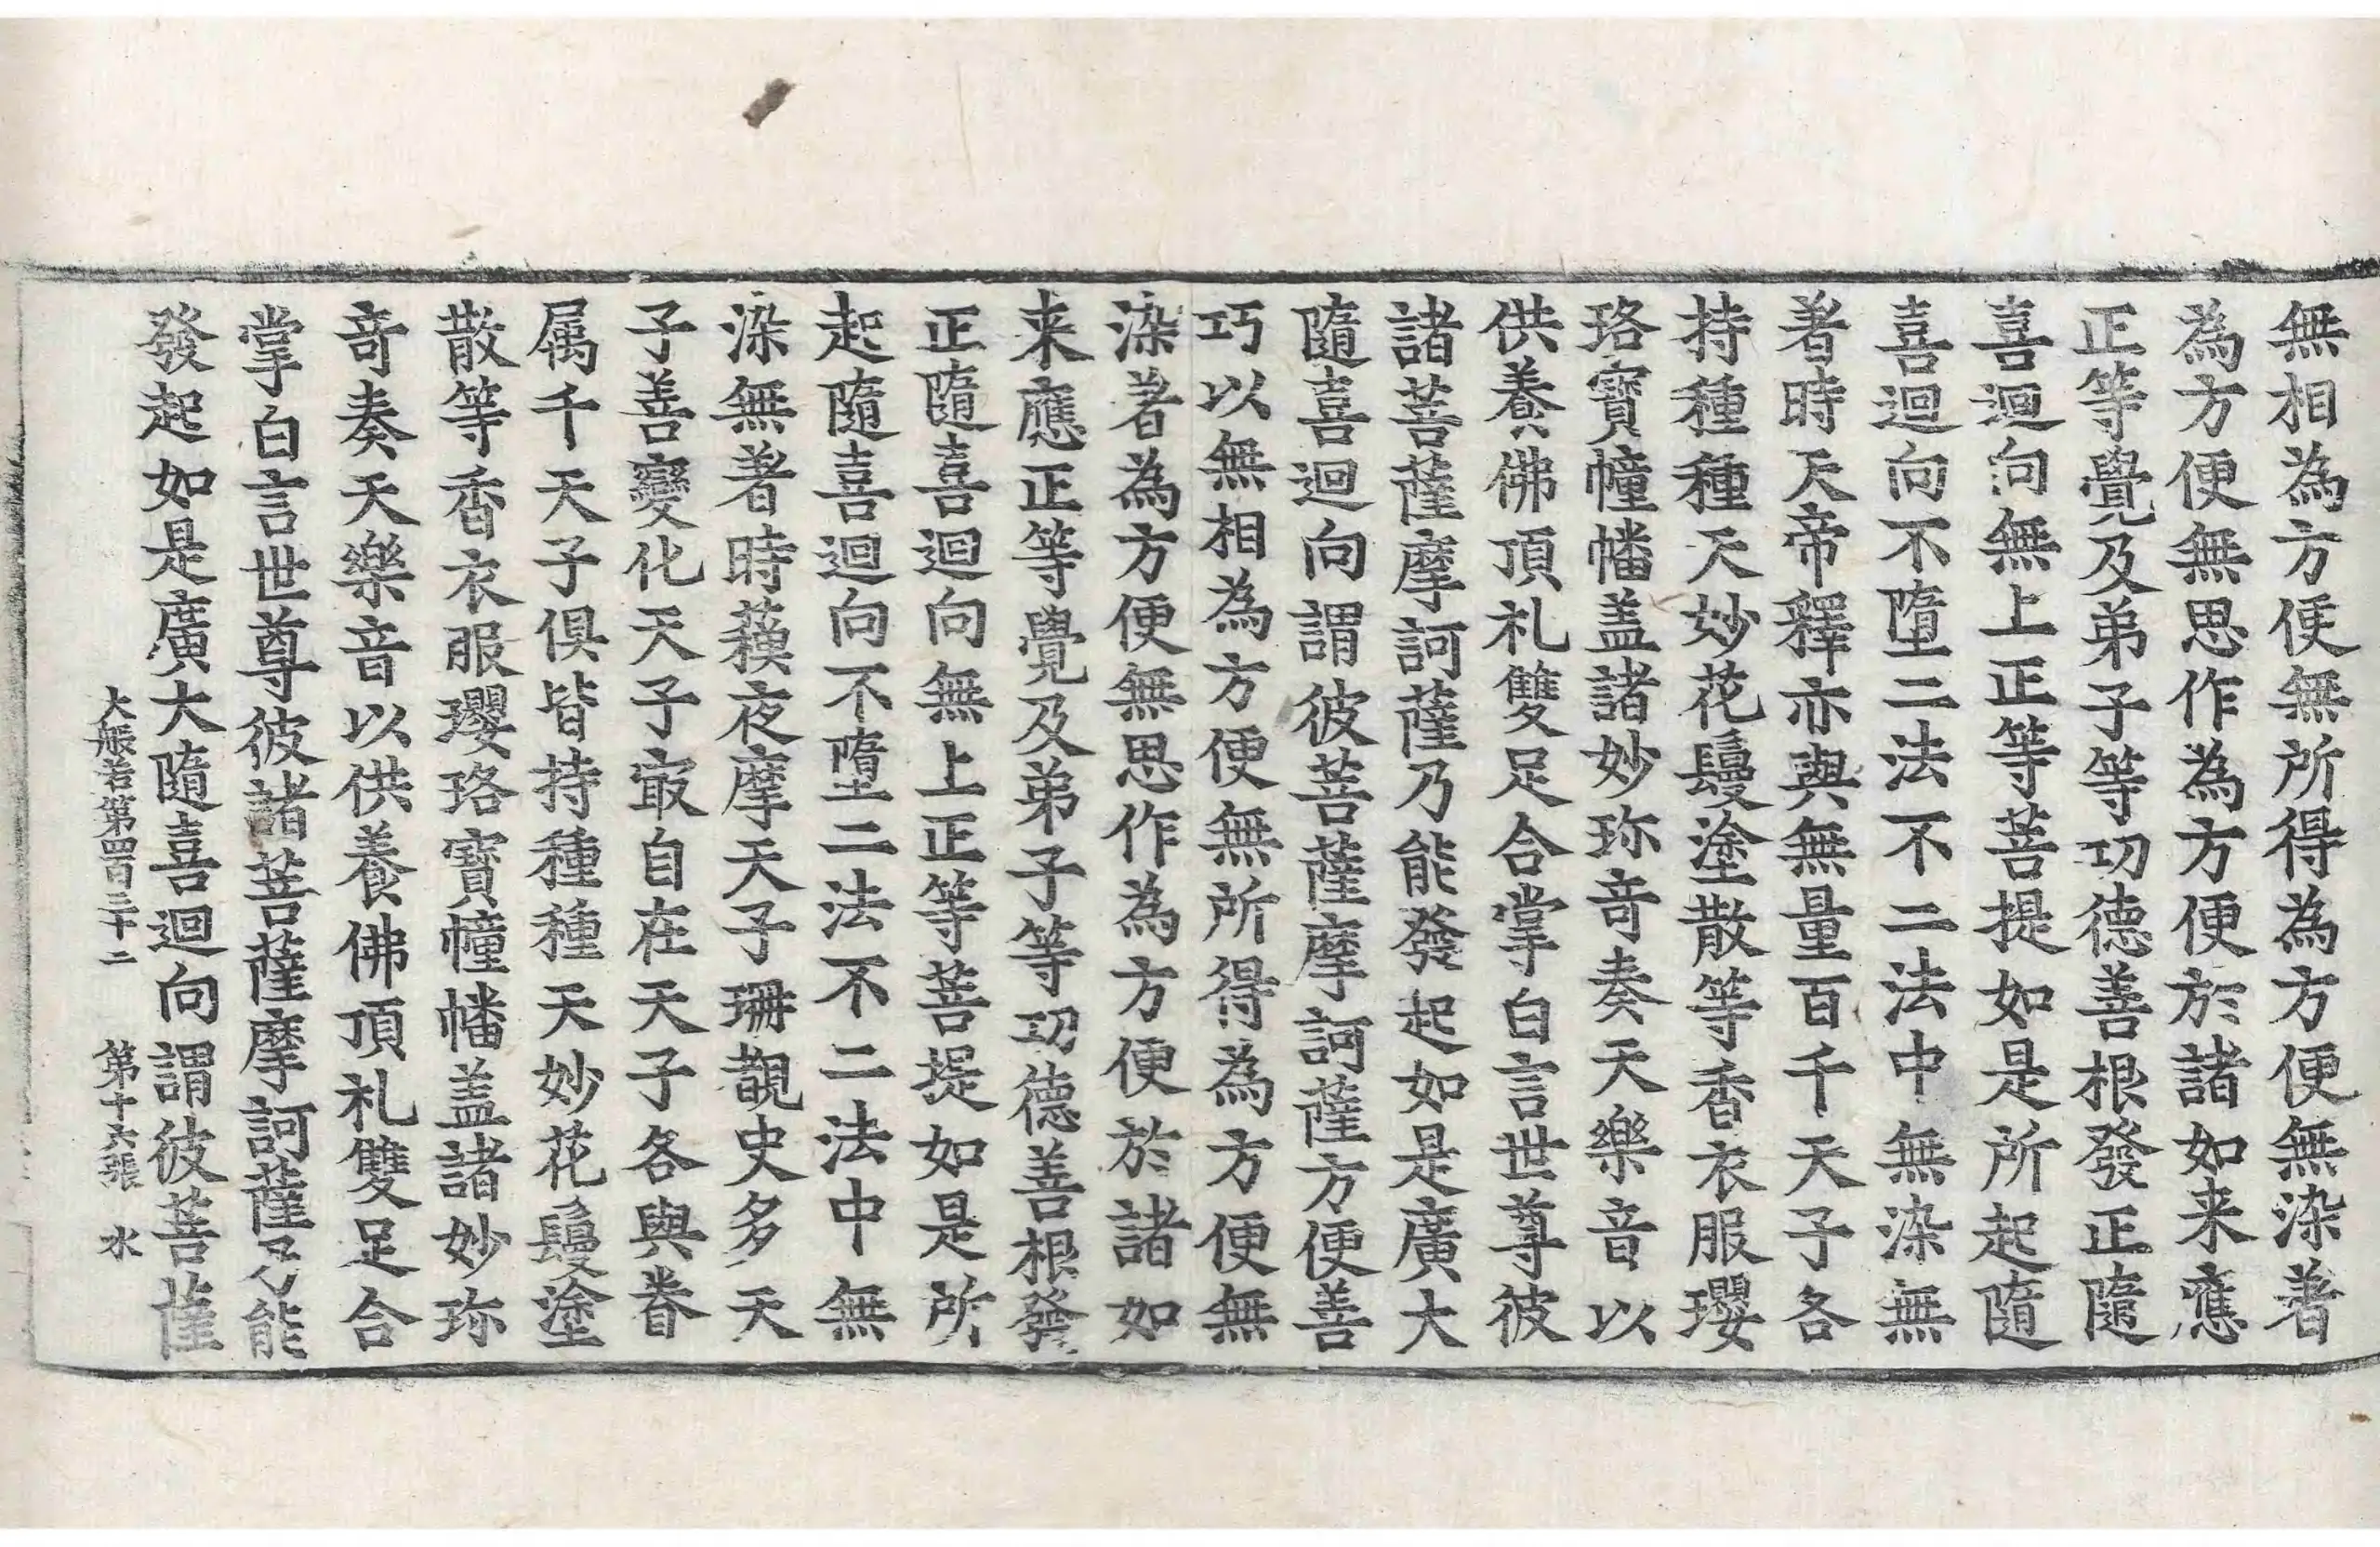 無相為方便無所得為方便無染著
為方便無思作為方便於諸如来應
正等覺及弟子等功德善根發正隨
喜迴向無上正等菩提如是所起隨
喜迴向不墮二法不二法中無染無
著時天帝釋亦與無量百千天子各
持種種天妙花鬘塗散等香衣服瓔
珞寶幢幡盖諸妙珎竒奏天樂音以
供養佛頂礼雙足合掌白言世尊彼
諸菩薩摩訶薩乃能發起如是廣大
隨喜迴向謂彼菩薩摩訶薩方便善
巧以無相為方便無所得為方便無
染著為方便無思作為方便於諸如
来應正等覺及弟子等功德善根發
正隨喜迴向無上正等菩提如是所
起隨喜迴向不墮二法不二法中無
染無著時蘓夜摩天子珊覩史多天
子善變化天子㝡自在天子各與眷
属千天子俱皆持種種天妙花鬘塗
散等香衣服瓔珞寶幢幡盖諸妙珎
竒奏天樂音以供養佛頂礼雙足合
掌白言世尊彼諸菩薩摩訶薩乃能
發起如是廣大隨喜迴向謂彼菩薩
大般若第四百三十二 第十六張 水